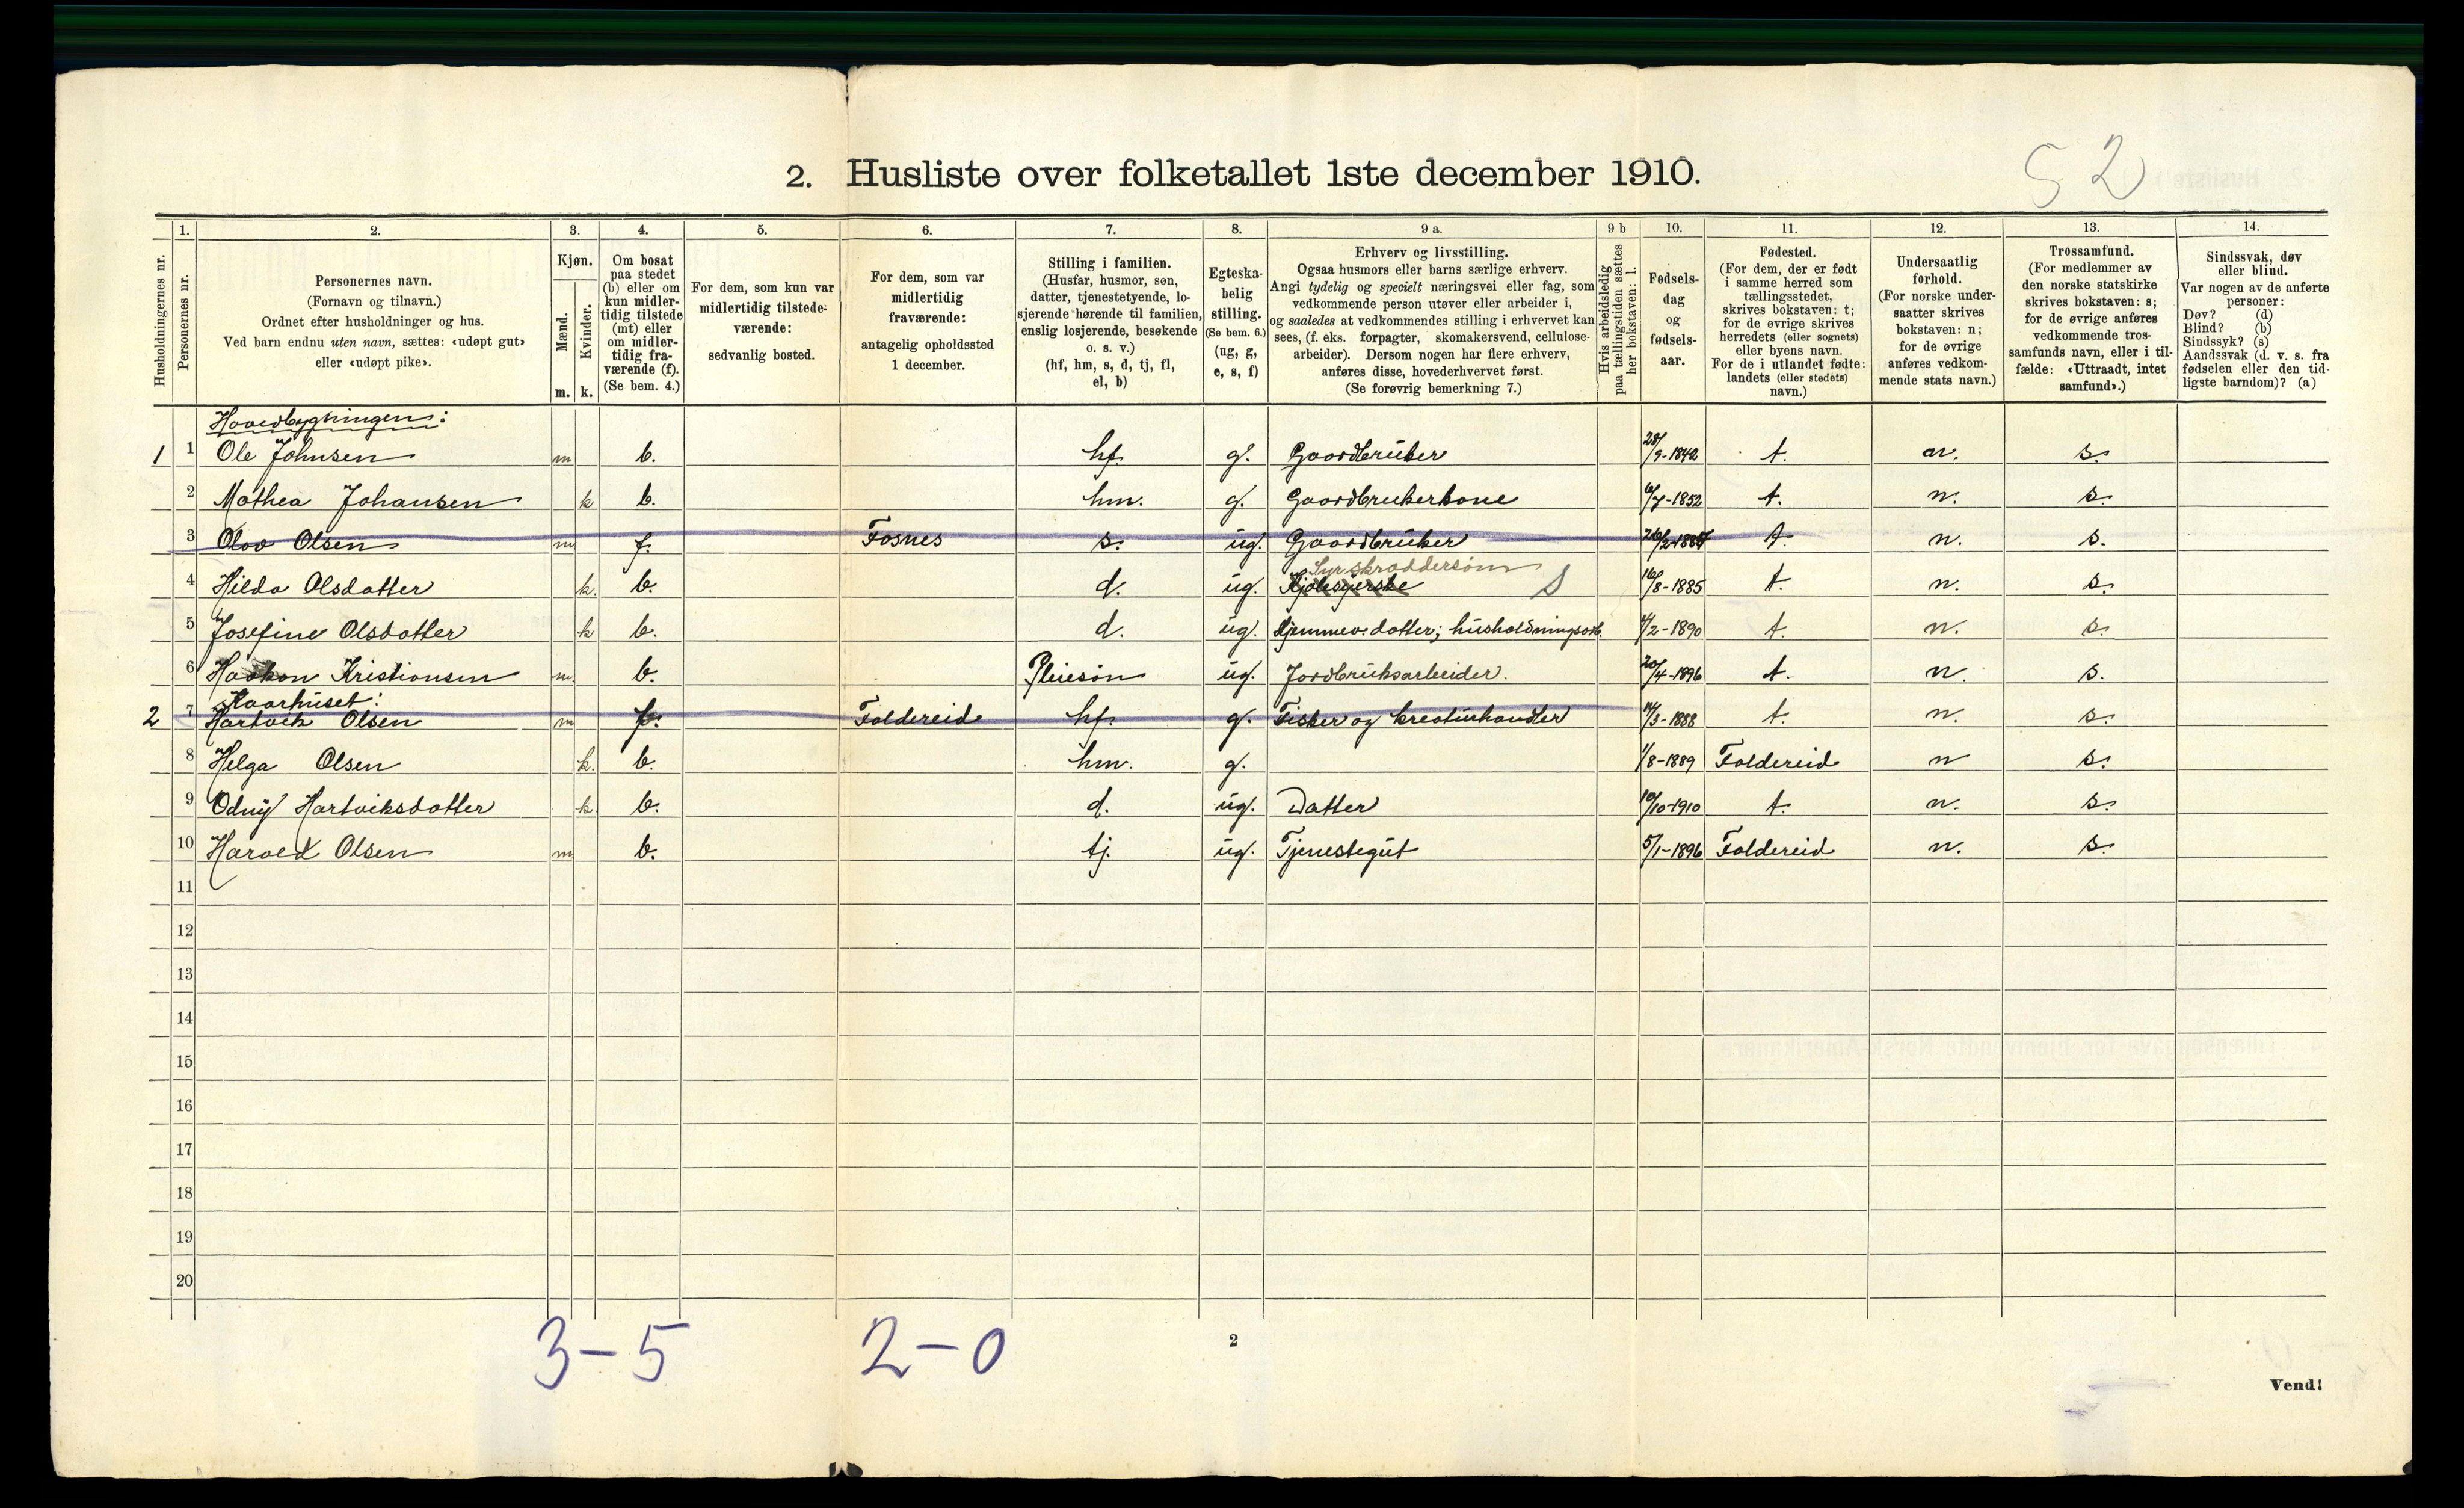 52
2. Husliste over folketallet 1ste december 1910.
Husholdningernes nr.
1.
Personernes nr.
2.
Personernes navn.
(Fornavn og tilnavn.)
Ordnet efter husholdninger og hus.
Ved barn endnu uten navn, sættes: «udøpt gut»
eller «udøpt pike».
3.
Kjøn.
Mænd.
Kvinder.
m. k.
4.
Om bosat
paa stedet
(b) eller om
kun midler-
tidig tilstede
(mt) eller
om midler-
tidig fra-
værende (f).
(Se bem. 4.)
5.
For dem, som kun var
midlertidig tilstede-
værende:
sedvanlig bosted.
6.
For dem, som var
midlertidig
fraværende:
antagelig opholdssted
1 december.
7.
Stilling i familien.
(Husfar, husmor, søn,
datter, tjenestetyende, lo-
sjerende hørende til familien,
enslig losjerende, besøkende
o. s. v.)
(hf, hm, s, d, tj, fl,
el, b)
8.
Egteska-
belig
stilling.
(Se bem. 6.)
(ug, g,
e, s, f)
9 a.
Erhverv og livsstilling.
Ogsaa husmors eller barns særlige erhverv.
Angi tydelig og specielt næringsvei eller fag, som
vedkommende person utøver eller arbeider i,
og saaledes at vedkommendes stilling i erhvervet kan
sees, (f. eks. forpagter, skomakersvend, cellulose-
arbeider). Dersom nogen har flere erhverv,
anføres disse, hovederhvervet først.
(Se forøvrig bemerkning 7.)
9 b
Hvis arbeidsledig
paa tællingstiden sættes
her bokstaven: l.
10.
Fødsels-
dag
og
fødsels-
aar.
11.
Fødested.
(For dem, der er født
i samme herred som
tællingsstedet,
skrives bokstaven: t;
for de øvrige skrives
herredets (eller sognets)
eller byens navn.
For de i utlandet fødte:
landets (eller stedets)
navn.)
12.
Undersaatlig
forhold.
(For norske under-
saatter skrives
bokstaven: n;
for de øvrige
anføres vedkom-
mende stats navn.)
13.
Trossamfund.
(For medlemmer av
den norske statskirke
skrives bokstaven: s;
for de øvrige anføres
vedkommende tros-
samfunds navn, eller i til-
fælde: «Uttraadt, intet
samfund».)
14.
Sindssvak, døv
eller blind.
Var nogen av de anførte
personer:
Døv? (d)
Blind? (b)
Sindssyk? (s)
Aandssvak (d. v. s. fra
fødselen eller den tid-
ligste barndom)? (a)
Hovedbygningen:
1 1 Ole Johnsen m b. hf. g. Gaardbruker 28/9-1842 t. n. s.
2 Mathea Johansen k b. hm. g. Gaardbrukerkone 6/7-1852 t. n. s.
3 Olav Olsen m f. Fosnes s. ug. Gaardbruker t. n. s.
Syr skræddersøm
4 Hilda Olsdatter k. b. d. ug. Kjolesyerske S 16/8-1885 t. n. s.
5 Josefine Olsdatter k b. d. ug. Hjemmev. datter; husholdningsarb. 4/2-1890 t. n. s.
6 Haakon Kristiansen m. b. Pleiesøn ug. Jordbruksarbeider. 20/4-1896 t. n. s.
Kaarhuset:
2 7 Hartvik Olsen m f. Foldereid hf. g. Fisker og kreaturhandler 14/3-1888 t. n. s.
8 Helga Olsen k. b. hm. g. 1/8-1889 Foldereid n s.
9 Odny Hartviksdatter k. b. d. ug. Datter 10/10-1910 t. n. s.
10 Harald Olsen m b. tj. ug. Tjenestegut 5/1-1896 Foldereid n. s.
11
12
13
14
15
16
17
18
19
20
3-5 2-0
2
Vend!